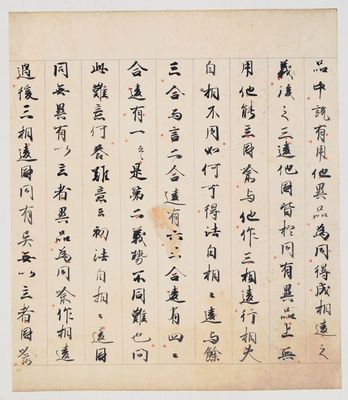 品中説有用他異品為同得成相違之
義後之三違他因皆於同有異品上無
用他能立因為与他作三相違行相
自相不同如何可得法自相〻違与餘
三合而言二合違有六三合違有四〻
合違有一〻是第二義勢不同難也問
此難意何答難意云初法自相〻違因
同無異有以立者異品為同喩作相違
過後三相違因同有異無以立者因